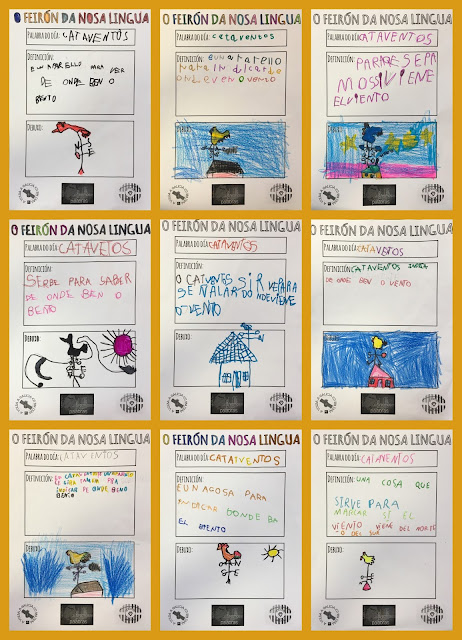 O FEIRÓN DA NOSA LINGUA
PALABRA DO DÍA: CATAVENTOS
DEFINICIÓN:
E UN APARELLO PARA VER
DE ONDE BEN O
BENTO
DEBUXO:
O FEIRÓN DA NOSA LINGUA
PALABRA DO DÍA: cataventos
DEFINICIÓN:
e un aparello
para indicar do
onde ven o vento
DEBUXO:
O FEIRÓN DA NOSA LINGUA
PALABRA DO DÍA: CATAVENTOS
DEFINICIÓN:
PARA QE SEPA
MOS SI VIENE
EL VIENTO
DEBUXO:
O FEIRÓN DA NOSA LINGUA
PALABRA DO DÍA: CATAVETOS
DEFINICIÓN:
SERBE PARA SABER
DE ONDE BEN O
BENTO
DEBUXO:
O FEIRÓN DA NOSA LINGUA
PALABRA DO DÍA: CATAVENTOS
DEFINICIÓN:
O CATAVENTOS SIRVE PARA
SEÑALAR DONDE VIENE
O VENTO
DEBUXO:
O FEIRÓN DA NOSA LINGUA
PALABRA DO DÍA: CATAVETOS
DEFINICIÓN:
CATAVENTOS INDICA
DE ONDE BEN O VENTO
DEBUXO:
O FEIRÓN DA NOSA LINGUA
PALABRA DO DÍA: CATAVENTOS
DEFINICIÓN:
INDICAR DE ONDE BEN O
BENTO
DEBUXO:
O FEIRÓN DA NOSA LINGUA
PALABRA DO DÍA: CATAIVENTOS
DEFINICIÓN:
E UNA COSA PARA
INDICAR DONDE BA
EL BIENTO
DEBUXO:
O FEIRÓN DA NOSA LINGUA
PALABRA DO DÍA: CATAVENTOS
DEFINICIÓN: UNA COSA QUE
SIRVE PARA
MARCAR SI EL
VIENTO VIENE DEL NORTE
O DEL SUR
DEBUXO: